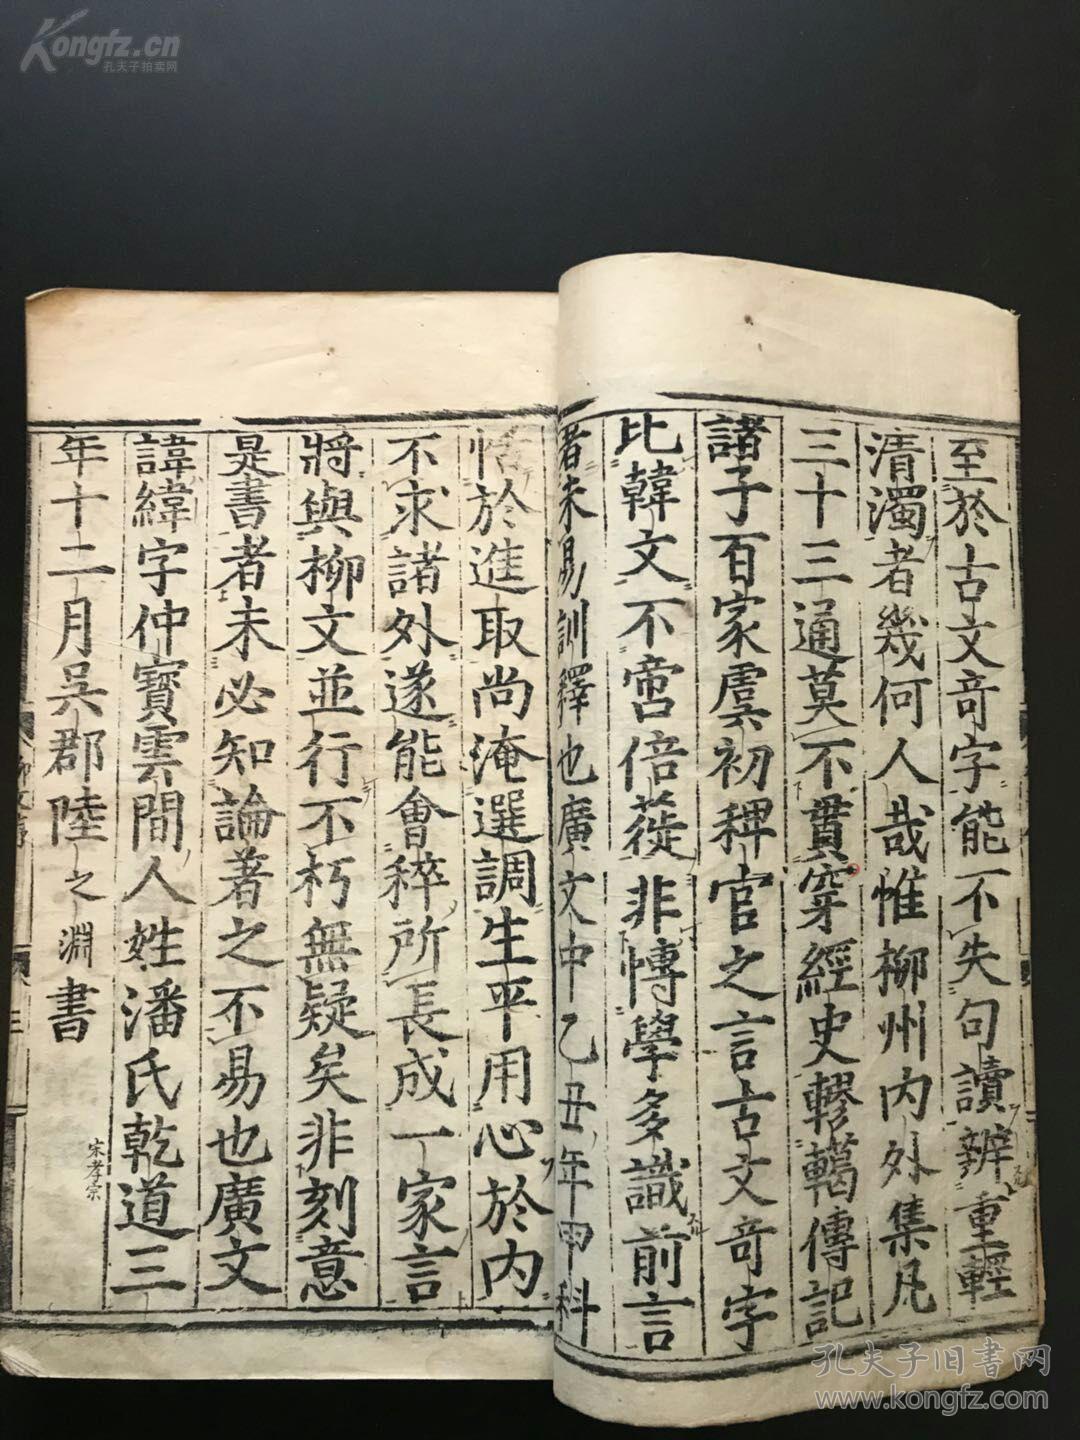 Kongfz.cn
孔夫子拍卖网
至於古文竒字能不失句讀辨重輕
清濁者幾何人哉惟柳州内外集凡
三十三通莫不貫穿經史轇轕傳記
諸子百家虞初稗官之言古文竒字
比韓文不啻倍蓰非愽學多識前言
者未易訓釋也廣文中乙丑年甲科
恬於進取尚淹選調生平用心於内
不求諸外遂能會稡所長成一家言
將與柳文並行不朽無疑矣非刻意
是書者未必知論著之不易也廣文
諱緯字仲寳雲間人姓潘氏乾道三
宋孝宗
年十二月吳郡陸之淵書
孔夫子旧书网
www.kongfz.com